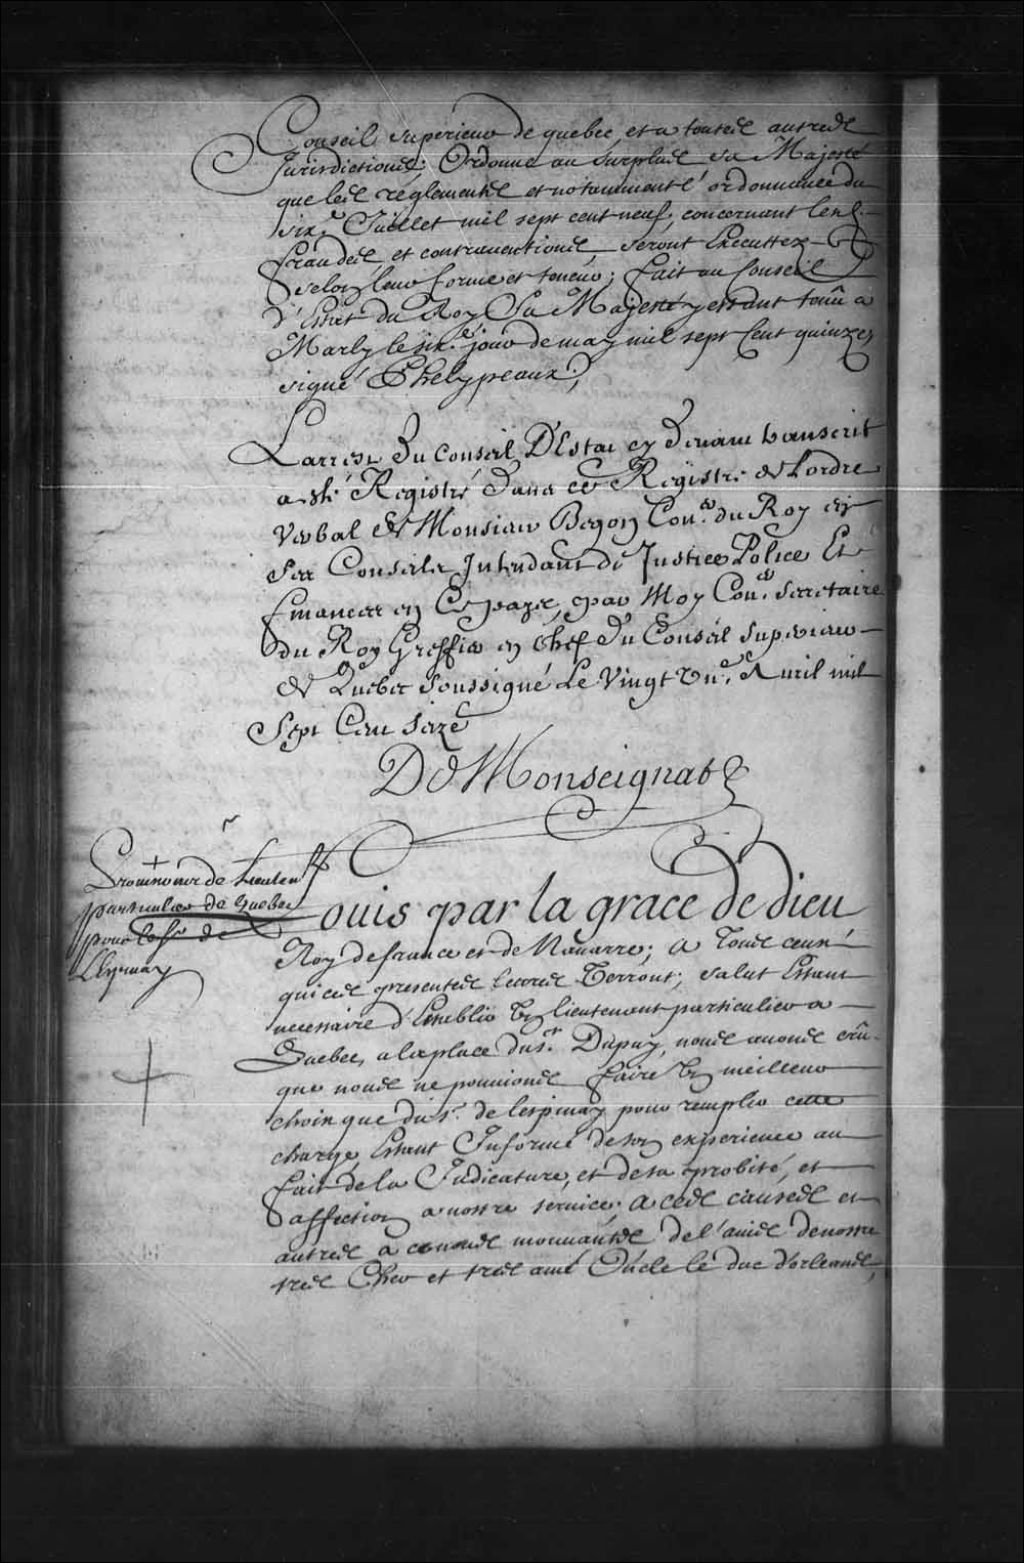 Conseil superieur de quebec, et a toutes autres
Jurisdictions; Ordonne au surplus sa Majesté
que les reglements et notamment l'ordonnance du
six.e Juillet mil sept cent neuf, concernant les
fraudes et contraventions, seront Executtez
selon leur forme et teneur; fait au Conseil
d'Estat du Roy Sa Majesté y estant tenû a
Marly le six.e jour de may mil sept Cent quinze,
signé Phelypeaux;
Larrest Du Conseil D'Estat cy devant transcrit
a esté Registré dans ce Registre de Lordre
Verbal de Monsieur Begon Con.er du Roy en
ses Conseils Intendant de Justice Police Et
finances en Ce pays, par Moy Con.er Secretaire
du Roy Greffier en chef du Conseil Superieur
de Quebec soussigné Le Vingt un.e Avril mil
Sept Cent Seize
De Monseignat
Provisions de Lieuten.r
particulier de Quebec
pour le sr de
Lespinay
Louis par la grace de dieu
Roy de france et de Navarre; a Tous ceux
qui ces presentes lettres Verront; salut Estant
necessaire d'Establir un lieutenant particulier a
Quebec, a la place du s.r Dupuy, nous avons crû
que nous ne pouvions faire un meilleur
choix que du s.r de lespinay pour remplir cette
charge, Estant Informé de son experience au
fait de la Judicature, et de sa probité, et
affection a nostre service; A ces causes et
autres a ce nous mouvantes de l'avis de nostre
tres Cher et tres amé Oncle le duc d'orleans,